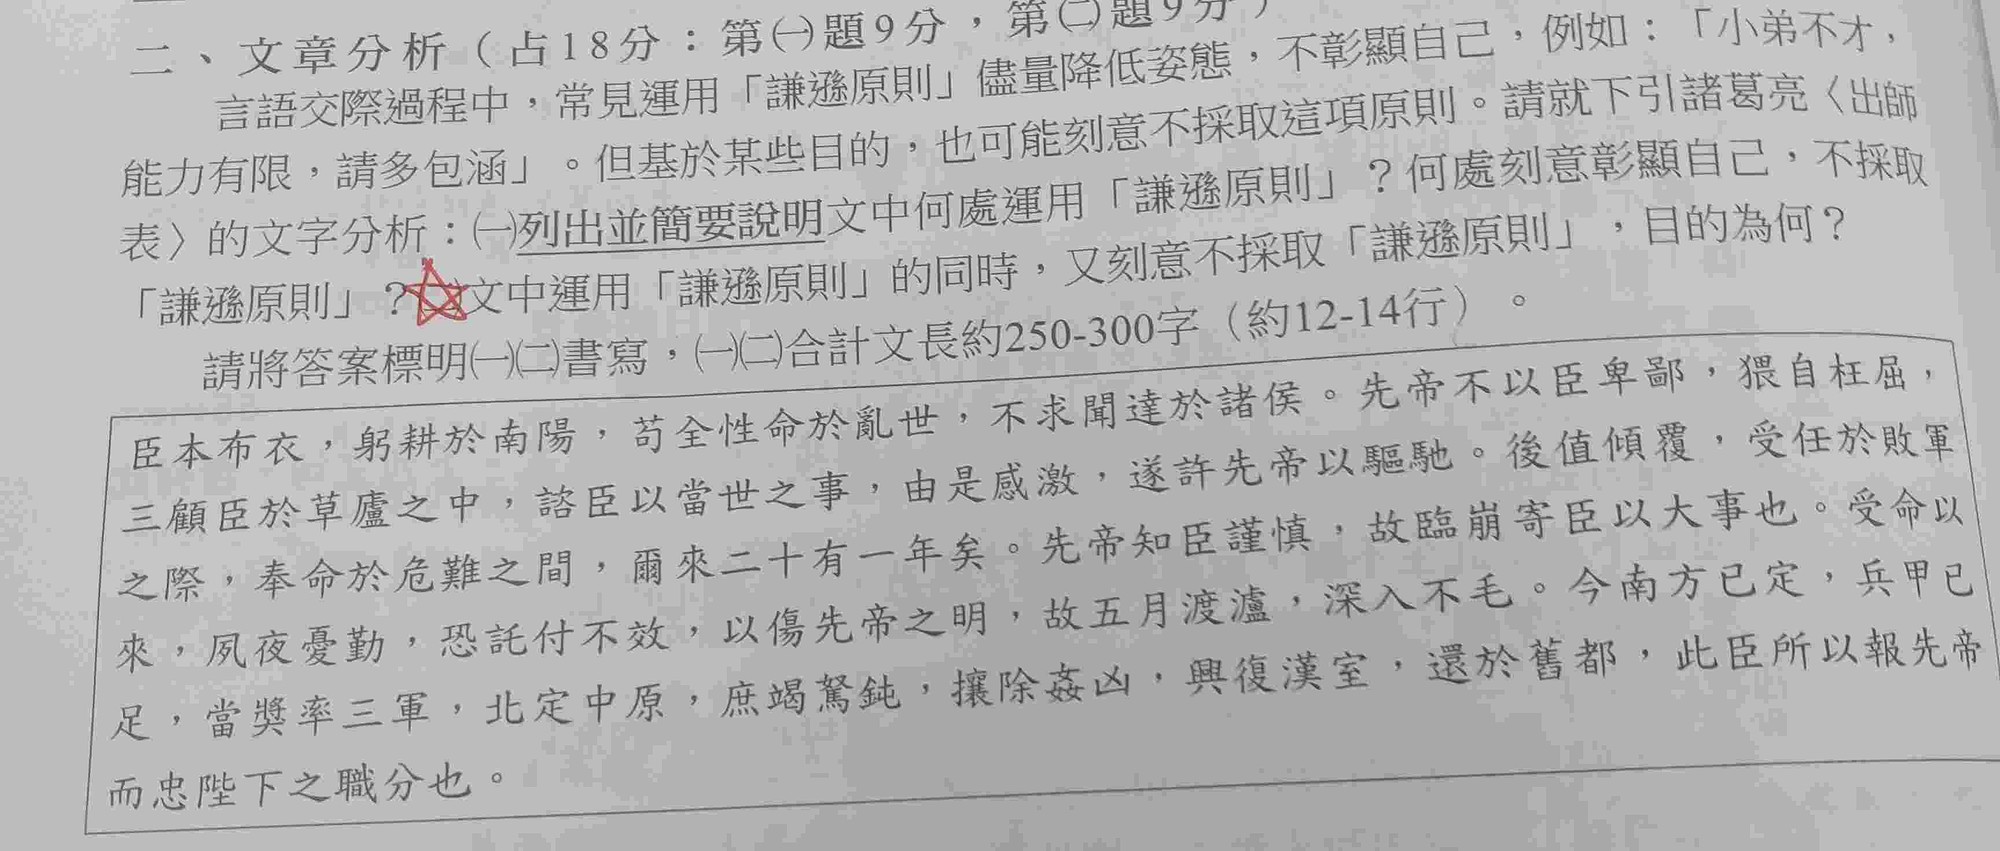 二、文章分析（占18分：第㈠題9分，第㈡題9分）
言語交際過程中，常見運用「謙遜原則」儘量降低姿態，不彰顯自己，例如：「小弟不才，
能力有限，請多包涵」。但基於某些目的，也可能刻意不採取這項原則。請就下引諸葛亮〈出師
表〉的文字分析：㈠列出並簡要說明文中何處運用「謙遜原則」？何處刻意彰顯自己，不採取
「謙遜原則」？文中運用「謙遜原則」的同時，又刻意不採取「謙遜原則」，目的為何？
請將答案標明㈠㈡書寫，㈠㈡合計文長約250-300字（約12-14行）。
臣本布衣，躬耕於南陽，苟全性命於亂世，不求聞達於諸侯。先帝不以臣卑鄙，猥自枉屈，
三顧臣於草廬之中，諮臣以當世之事，由是感激，遂許先帝以驅馳。後值傾覆，受任於敗軍
之際，奉命於危難之間，爾來二十有一年矣。先帝知臣謹慎，故臨崩寄臣以大事也。受命以
來，夙夜憂勤，恐託付不效，以傷先帝之明，故五月渡瀘，深入不毛。今南方已定，兵甲已
足，當獎率三軍，北定中原，庶竭駑鈍，攘除姦凶，興復漢室，還於舊都，此臣所以報先帝
而忠陛下之職分也。